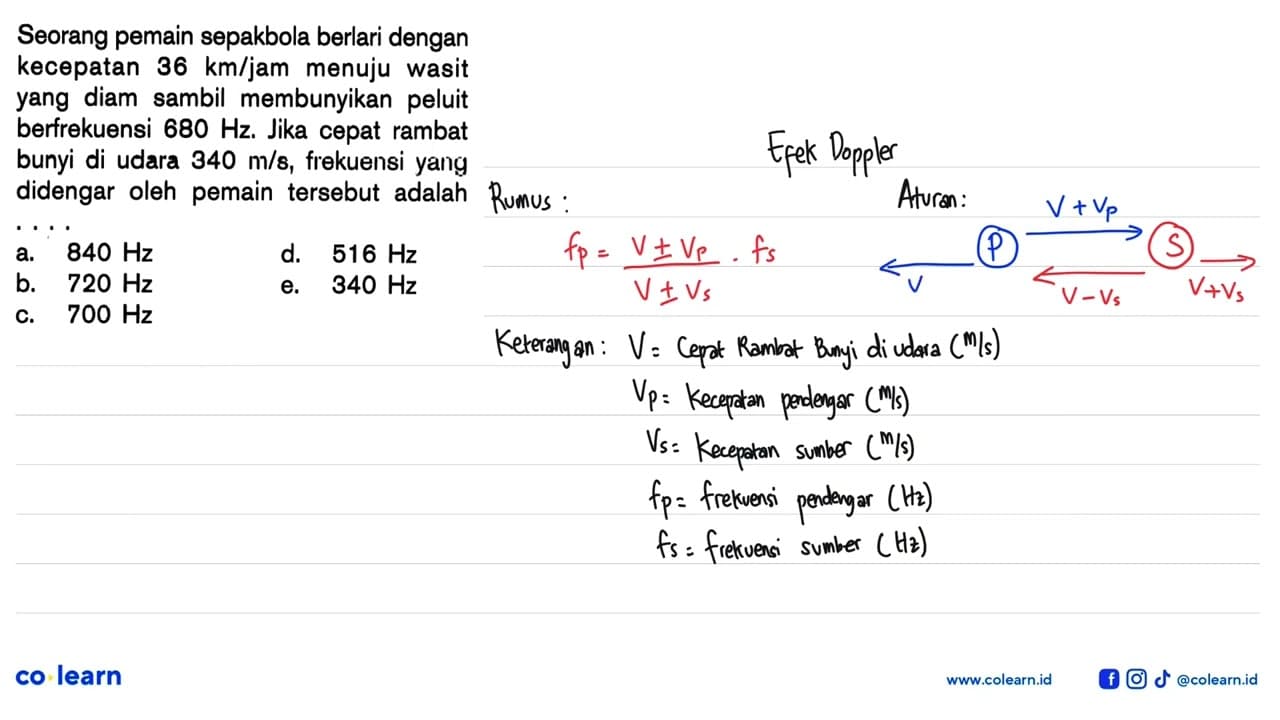 Seorang pemain sepakbola berlari dengan
kecepatan 36 km/jam menuju wasit
yang diam sambil membunyikan peluit
berfrekuensi 680 Hz. Jika cepat rambat
bunyi di udara 340 m/s, frekuensi yang
didengar oleh pemain tersebut adalah
. . . .
a. 840 Hz d. 516 Hz
b. 720 Hz e. 340 Hz
c. 700 Hz
Efek Doppler
Rumus :
fp = V ± Vp / V ± Vs . fs
Aturan :
V + Vp
P S
V V - Vs V + Vs
Keterangan : V = Cepat Rambat Bunyi di udara (m/s)
Vp = Kecepatan pendengar (m/s)
Vs = Kecepatan sumber (m/s)
fp = frekuensi pendengar (Hz)
fs = frekuensi sumber (Hz)
co learn
www.colearn.id @colearn.id